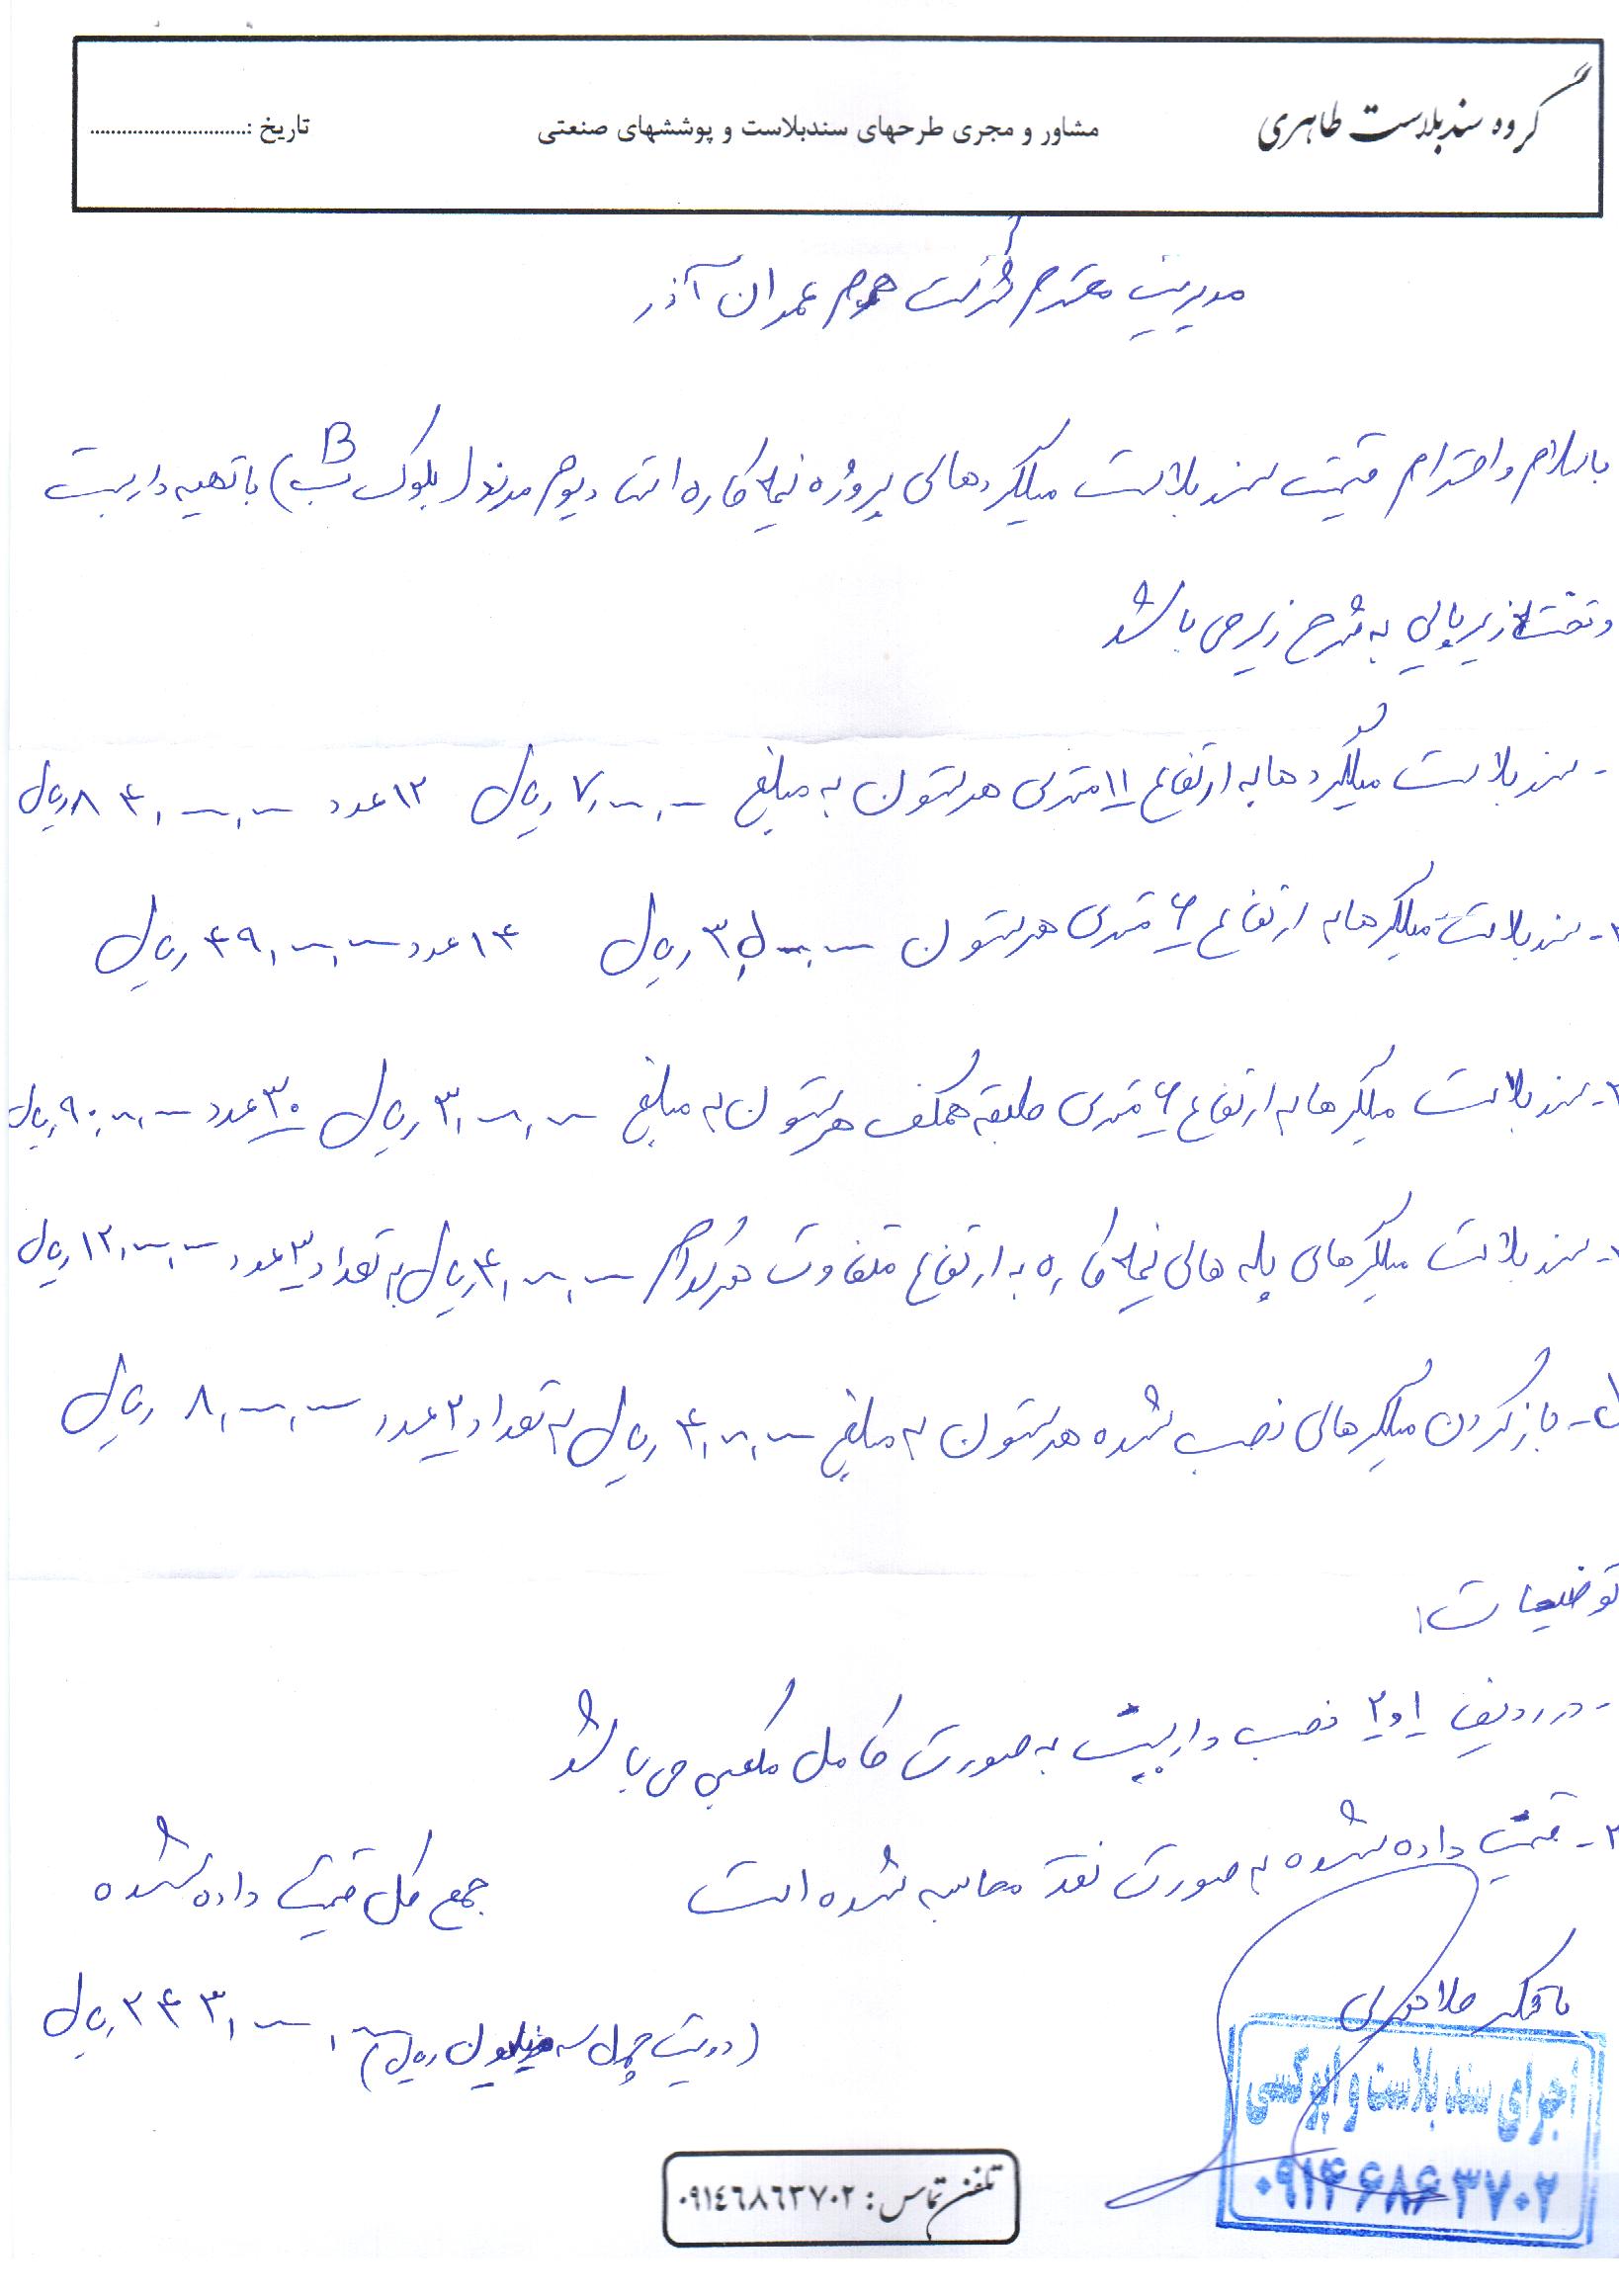 گروه سندبلاست طاهری
مشاور و مجری طرحهای سندبلاست و پوششهای صنعتی
تاریخ :..............................
مدیریت محترم شرکت عمران آذر
باسلام و احترام قیمت سندبلاست میلگردهای پروژه نیمه کاره مرند (بلوک B) با تهیه داربست
و تخته زیرپایی به شرح زیر می باشد
- سندبلاست میلگردها به ارتفاع ۱۱ متری هر ستون به مبلغ ۷,۰۰۰,۰۰۰ ریال ۱۲ عدد ۸۴,۰۰۰,۰۰۰ ریال
۲- سندبلاست میلگرها به ارتفاع ۶ متری هر ستون ۳,۵۰۰,۰۰۰ ریال ۱۴ عدد ۴۹,۰۰۰,۰۰۰ ریال
۳- سندبلاست میلگرها به ارتفاع ۶ متری طبقه همکف هر ستون به مبلغ ۳,۰۰۰,۰۰۰ ریال ۳۰ عدد ۹۰,۰۰۰,۰۰۰ ریال
- سندبلاست میلگرهای پله های نیمه کاره به ارتفاع متفاوت هرکدام ۴,۰۰۰,۰۰۰ ریال به تعداد ۳ عدد ۱۲,۰۰۰,۰۰۰ ریال
- باز کردن میلگرهای نصب شده هر ستون به مبلغ ۴,۰۰۰,۰۰۰ ریال به تعداد ۲ عدد ۸,۰۰۰,۰۰۰ ریال
توضیحات:
- در ردیف ۱ و ۲ نصب داربست به صورت کامل مکعبی می باشد
۲- قیمت داده شده به صورت نقد محاسبه شده است
جمع کل قیمت داده شده
۲۴۳,۰۰۰,۰۰۰ ریال
(دویست چهل سه میلیون ریال)
باتشکر
اجرای سندبلاست و اپوکسی
۰۹۱۴۶۸۶۳۷۰۲
تلفن تماس : ۰۹۱۴۶۸۶۳۷۰۲